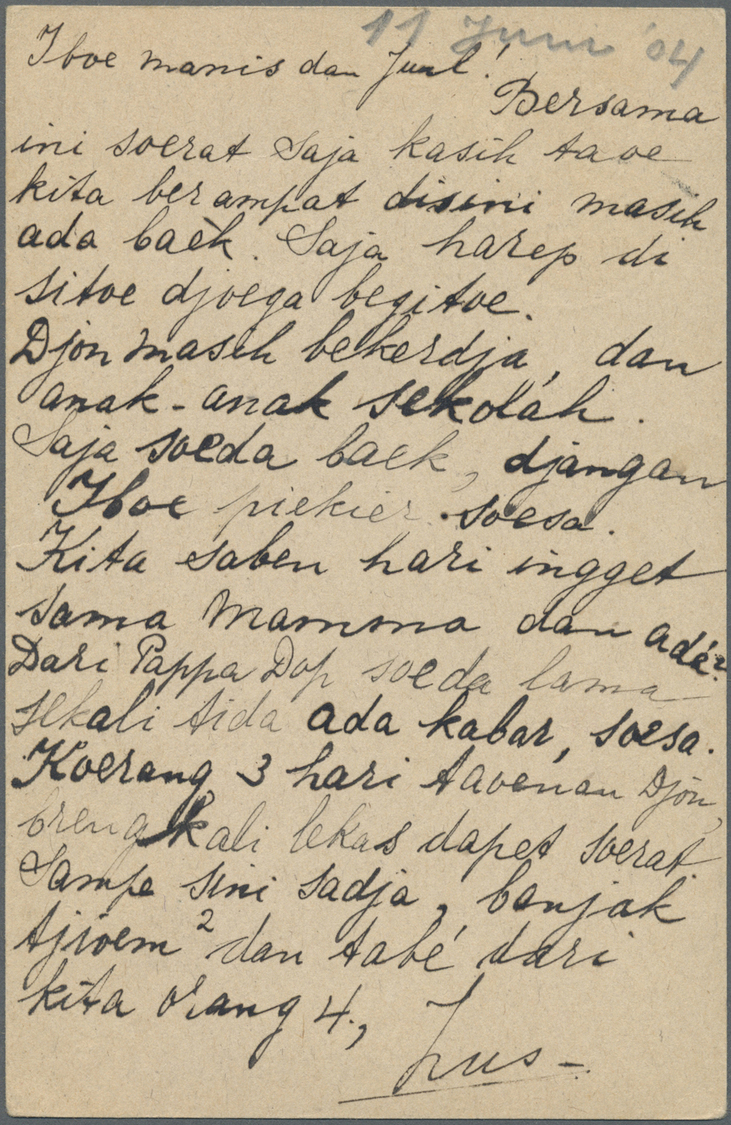 11 Juni '04
Iboe manis dan Juul!
Bersama
ini soerat saja kasih taoe
kita berampat disini masih
ada baek. Saja harep di
sitoe djoega begitoe.
Djon masih bekerdja, dan
anak-anak sekolah.
Saja soeda baek, djangan
Iboe piekier soesa.
Kita saben hari ingget
sama Mamma dan adé².
Dari Pappa Dop soeda lama
sekali tida ada kabar, soesa.
Koerang 3 hari taoenan Djon,
brengkali lekas dapet soerat.
Sampe sini sadja, banjak
tjioem² dan tabé dari
kita orang 4.,
Zus-